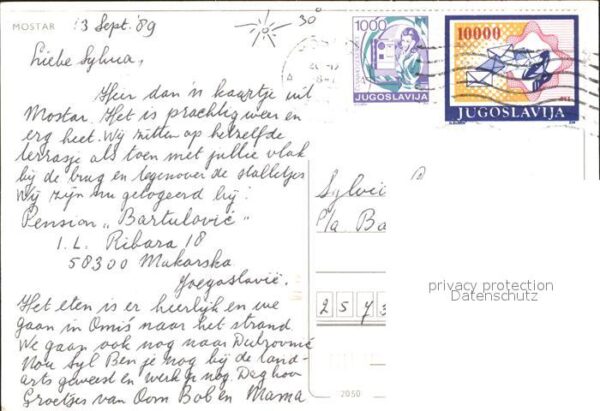 MOSTAR
13 Sept. '89
30°
Liebe Sylvia,
Hier dan 'n kaartje uit
Mostar. Het is prachtig weer en
erg heet. Wij zitten op hetzelfde
terrasje als toen met jullie vlak
bij de brug en tegenover de stalletjes
Wij zijn nu gelogeerd bij:
Pension „Bartulović"
I. L. Ribara 18
58300 Makarska
Joegoslavië.
Het eten is er heerlijk en we
gaan in Omiš naar het strand
We gaan ook nog naar Dubrovnic
Nou Syl Ben je nog bij de land-
arts geweest en werk je nog. Dag hoor
Groetjes van Oom Bob en Mama
1000
JUGOSLAVIJA
10000
JUGOSLAVIJA
Sylvia
p/a Ba
2573
privacy protection
Datenschutz
2050